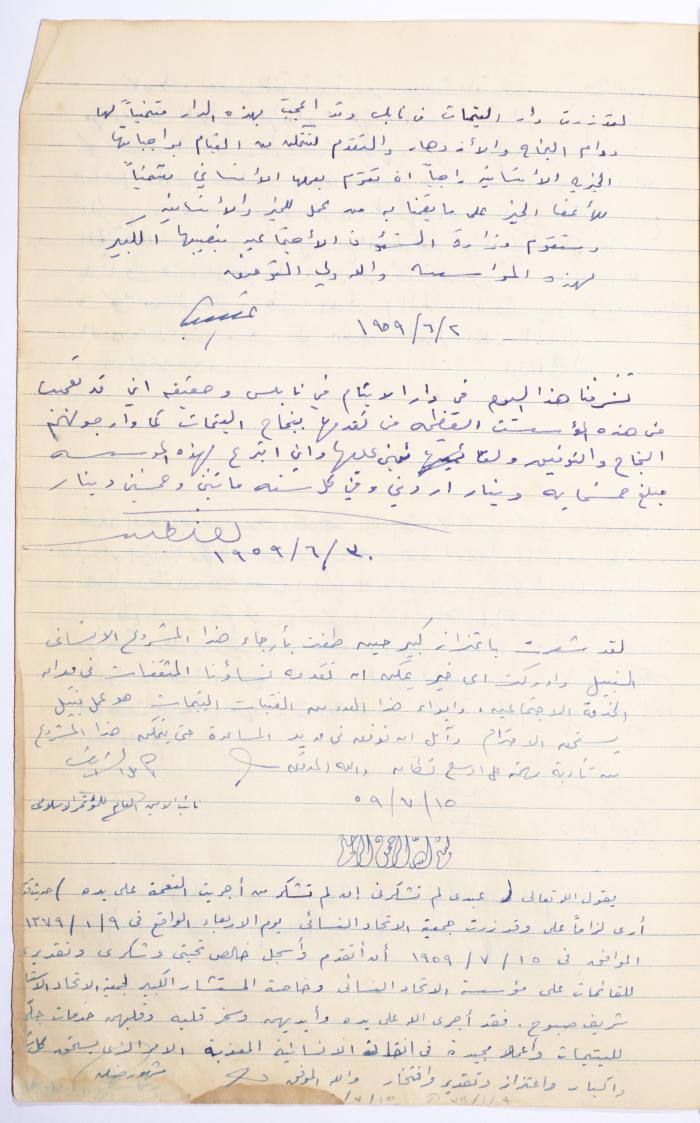 لقد زرت دار اليتيمات في نابلس وقد اعجبت بهذه الدار متمنياً لها
دوام النجاح والأزدهار والتقدم لتتمكن من القيام بواجباتها
الخيرية الأنسانية راجياً ان تقوم بعملها الأنساني متمنياً
للأعضا الخير على ما يقمنا به من عمل للخير والأنسانية
وستقوم وزارة الشئون الأجتماعية بنصيبها الكبير
لهذه المؤاسسه والله ولي التوفيق
١٩٥٩/٦/٢
تشرفنا هذا اليوم في دار الايتام في نابلس وحقيقه اني قد تعجبت
من هذه المؤسست العظيمه من تقدمها بنجاح اليتيمات كما وأرجو لهم
النجاح والتوفيق عليها واني اتبرع لهذه المؤسسه
مبلغ خمسمايه دينار اردني وفي كل سنه مائتين وخمسين دينار
١٩٥٩/٦/٣٠
لقد شعرت باعتزاز كبير حين طفت بأرجاء هذا المشروع الانساني
النبيل وادركت اى خير يمكن ان تقدمه نساؤنا المثقفات في ميدان
الخدمة الاجتماعية، وايواء هذا العدد من الفتيات اليتيمات هو عمل نبيل
يستحق الاحترام وآمل ان نوفق في مد يد المساعدة حتى يتمكن هذا المشروع
من تأدية رسالته على اوسع نطاق والله الموفق كامل الشريف
٥٩/٧/١٥ نائب الامين العام للمؤتمر الاسلامي
بسم الله الرحمن الرحيم
يقول الله تعالى ( عبدى لم تشكرنى إن لم تشكر من أجريت النعمة على يده ) حديث قد
أرى لزاماً على وقد زرت جمعية الاتحاد النسائى يوم الاربعاء الواقع فى ١٣٧٩/١/٩
الموافق فى ١٩٥٩/٧/١٥ أن أتقدم وأسجل خالص تحيتى وشكرى وتقديرى
للقائمات على مؤسسة الاتحاد النسائى وخاصة المستشار الكبير لجمعية الاتحاد النسا
شريف صبوح. فقد أجرى الله على يده وأيديهن وسخر قلبه وقلبهن خدمات جلّى
لليتيمات وأعمالا مجيدة فى انقاذ الانسانية المعذبة الامر الذى يستحق كل
واكبار واعتزاز وتقدير وافتخار والله الموفق
٧٩/١/٩ ٧/١٥